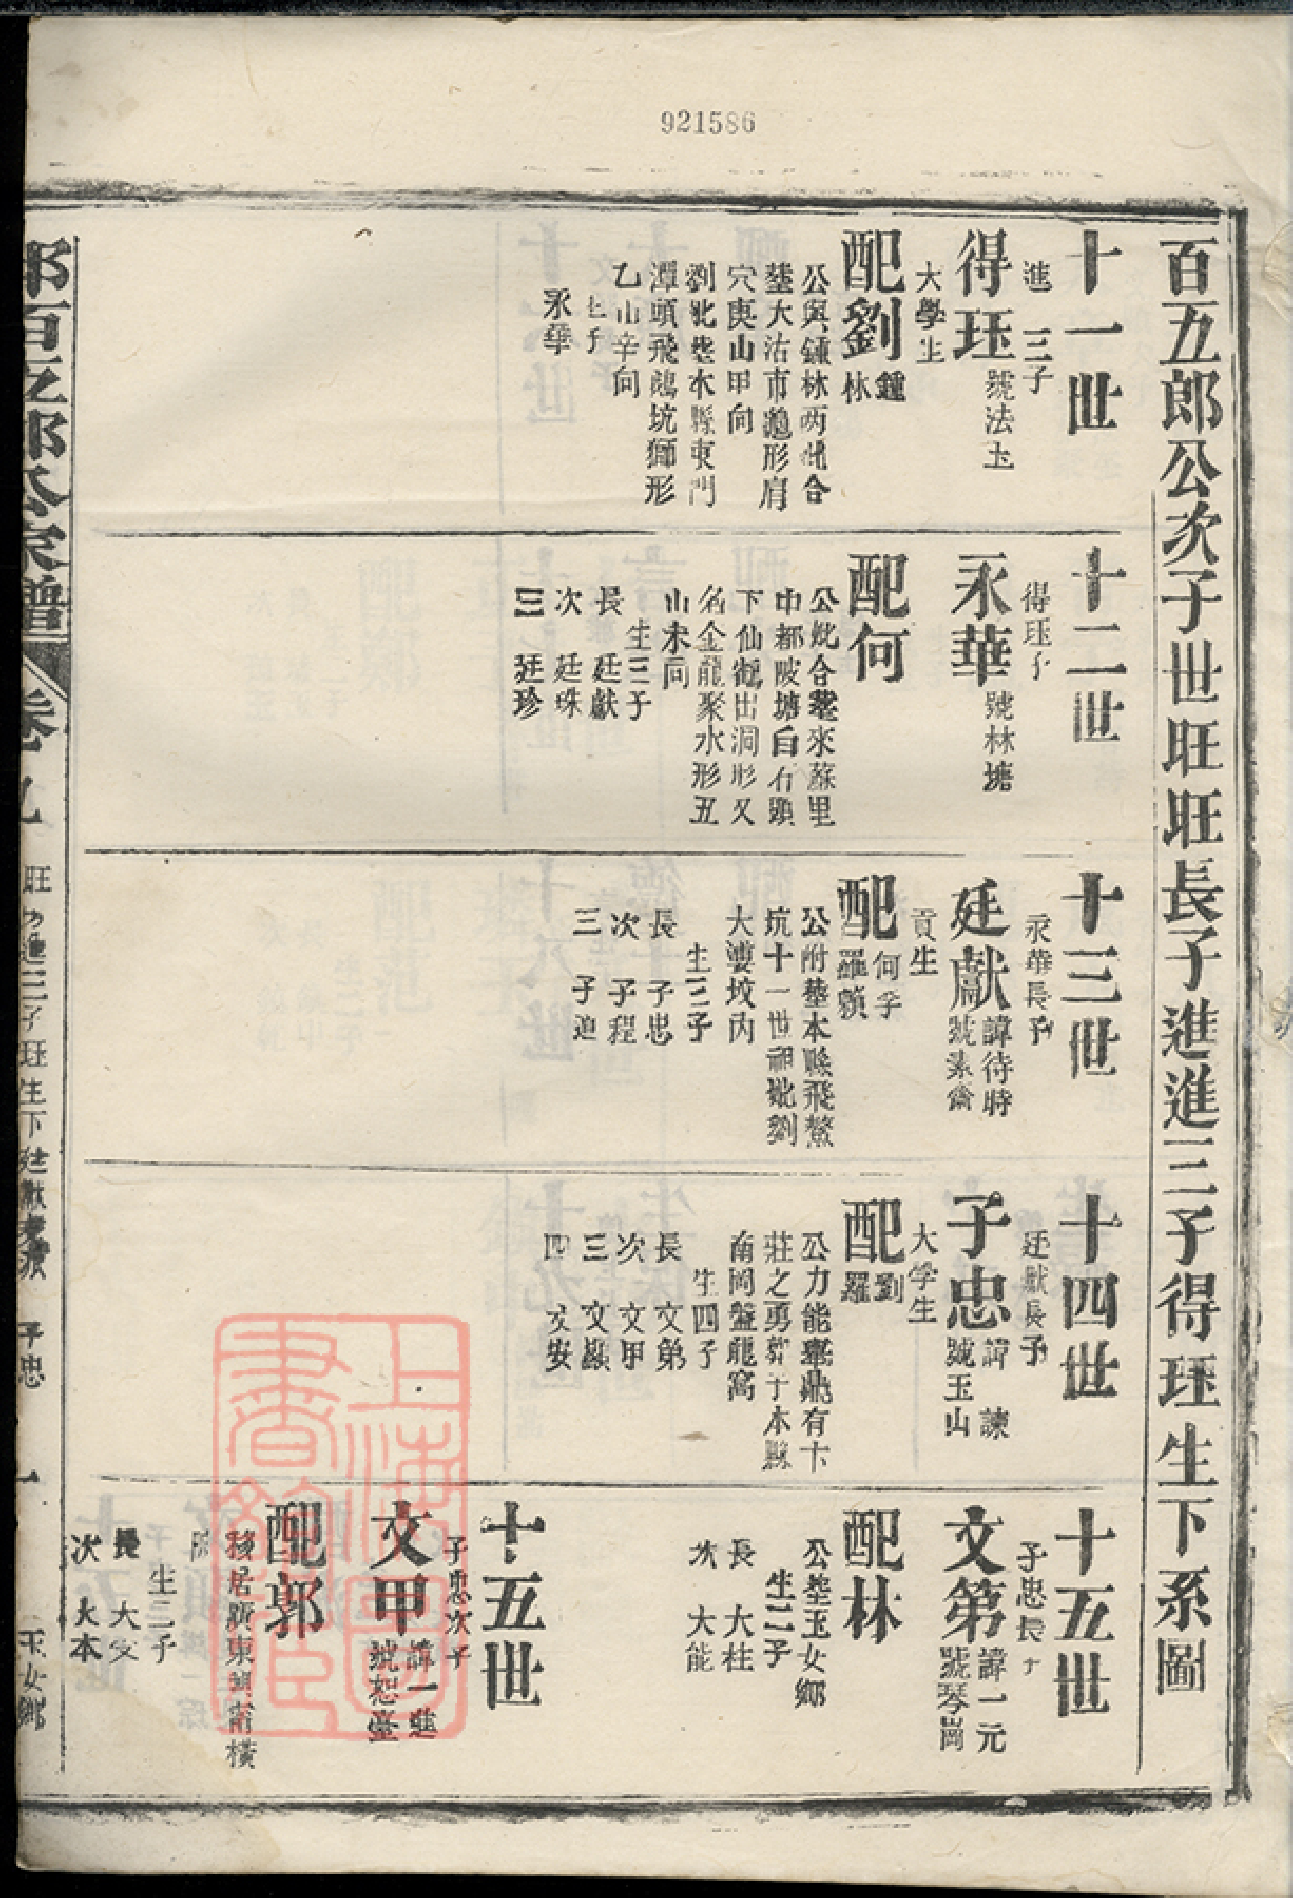 921586
百五郎公次子世旺旺長子進進三子得珏生下系圖
十一世
進 三子
得珏
號法玉
大學生
配劉
鍾
林
公與鍾林两妣合
塟大沽市龜形肩
穴庚山甲向
劉妣塟水縣東門
潭頭飛鵝坑獅形
乙山辛向
七子
永華
十二世
得珏子
永華
號林塘
配何
公妣合塟來蘇里
中都陂塘白石頭
下仙鶴出洞形又
名金龍聚水形丑
山未向
生三子
長 廷獻
次 廷珠
三 廷珍
十三世
永華長子
廷獻
諱待時
號素齋
貢生
配
何李
羅賴
公附塟本縣飛鰲
坑十一世祖妣劉
大孺坟内
生三子
長 子忠
次 子程
三 子迪
十四世
廷獻長子
子忠
諱 諫
號玉山
大学生
配
劉
羅
公力能舉鼎有卞
莊之勇塟于本縣
南岡盤龍窩
生四子
長 文第
次 文甲
三 文巖
四 文安
十五世
子忠長子
文第
諱一元
號琴崗
配林
公塟玉女鄉
生二子
長 大柱
次 大能
十五世
子忠次子
文甲
諱一進
號恕臺
配郭
移居廣東 橫
生二子
長 大文
次 大本
上海圖書館藏
郭百五郎公家譜
卷九
旺 進三子珏生下廷獻 子忠 一 玉女鄉